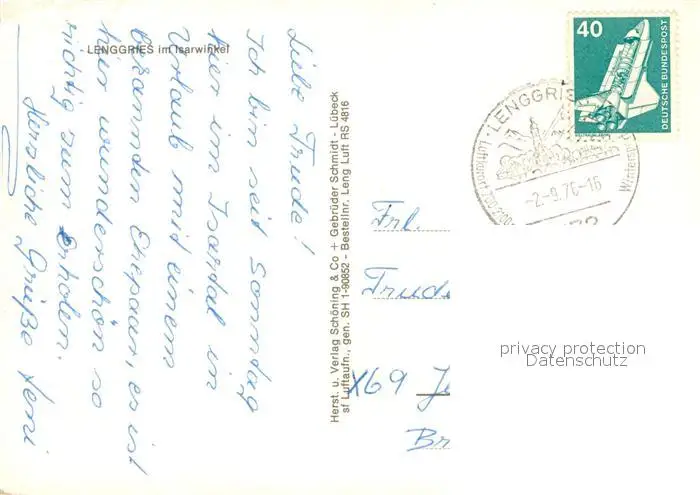 LENGGRIES im Isarwinkel
Liebe Trude!
Ich bin seit Sonntag
hier im Isartal in
Urlaub mit einem
bekannten Ehepaar, es ist
hier wunderschön so
richtig zum Erholen.
Herzliche Grüße Leni
Herst. u. Verlag Schöning & Co + Gebrüder Schmidt - Lübeck
sf Luftaufn., gen. SH 1-90852 - Bestellnr. Leng Luft RS 4816
40
DEUTSCHE BUNDESPOST
LENGGRIES
Luftkurort
-2.-9.76-16
Frl.
Trude
X69 Je
Br
privacy protection
Datenschutz